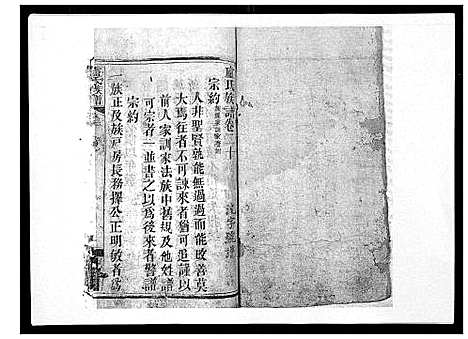 盧氏族譜卷二十
宗約
人非聖賢孰能無過過而能改善莫
大焉往者不可諫來者猶可追謹以
前人家訓家法族中甚規及他姓譜
可宗者一並書之以為後來者警譜
宗約
一族正及族戶房長務擇公正明敏者為